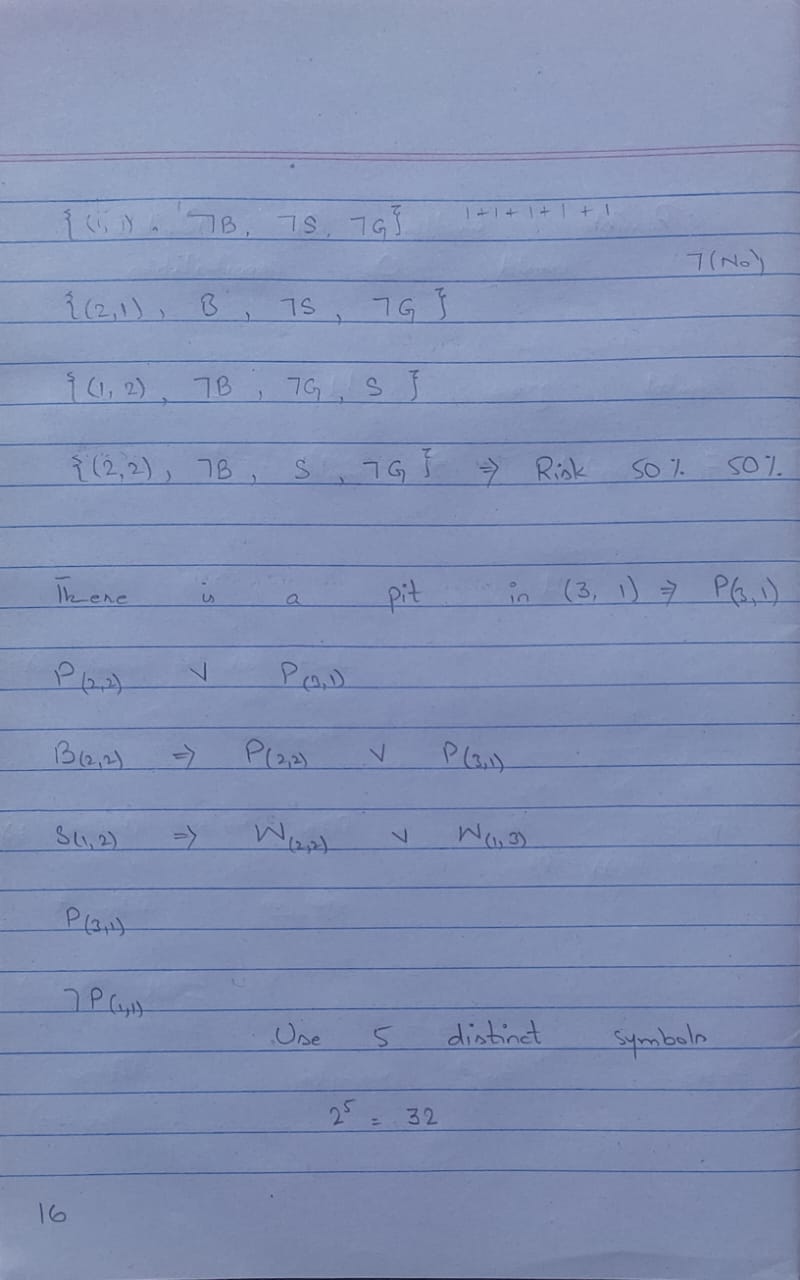 {(1,1), ¬B, ¬S, ¬G} 1+1+1+1+1
¬(No)
{(2,1), B, ¬S, ¬G}
{(1,2), ¬B, ¬G, S}
{(2,2), ¬B, S, ¬G} ⇒ Risk 50% 50%
There is a pit in (3, 1) ⇒ P(3,1)
P(2,2) ∨ P(3,1)
B(2,2) ⇒ P(2,2) ∨ P(3,1)
S(1,2) ⇒ W(2,2) ∨ W(1,3)
P(3,1)
¬P(1,1)
Use 5 distinct symbols
2⁵ = 32
16